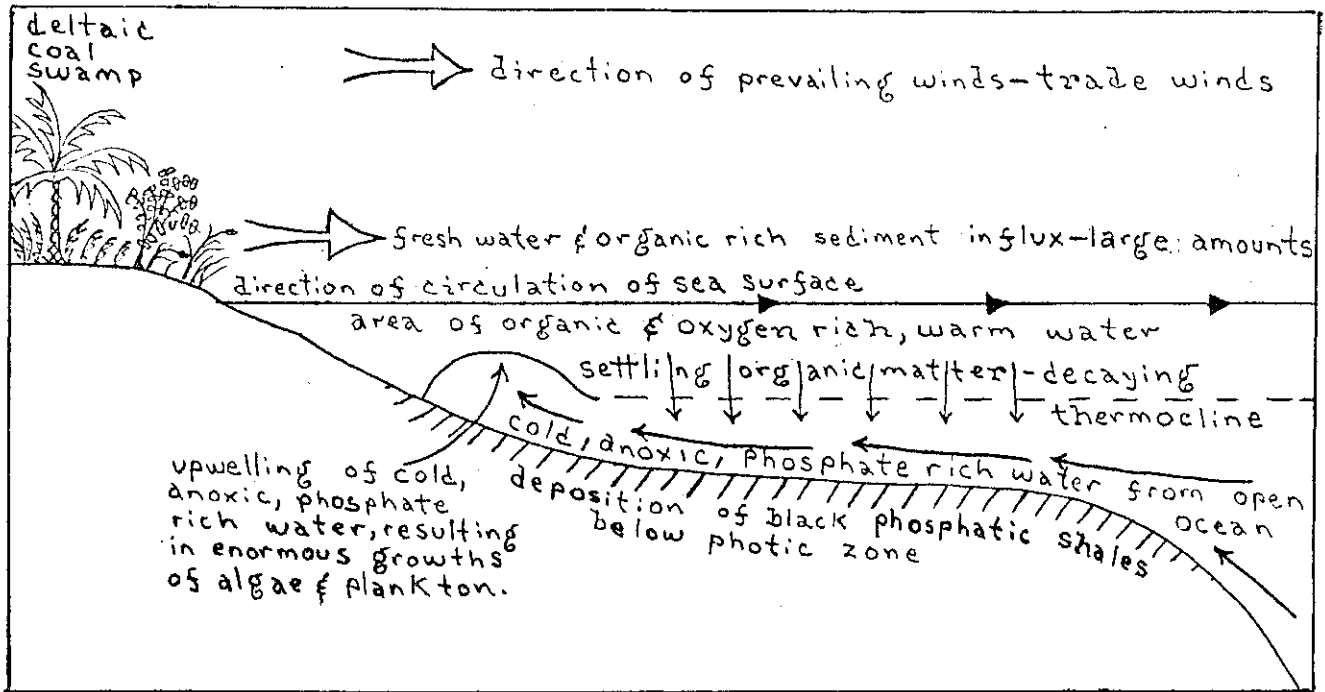 deltaic
coal
swamp
direction of prevailing winds-trade winds
fresh water & organic rich sediment influx-large amounts
direction of circulation of sea surface
area of organic & oxygen rich, warm water
settling organic matter-decaying
thermocline
cold, anoxic, phosphate rich water from open
ocean
upwelling of cold,
anoxic, phosphate
rich water, resulting
in enormous growths
of algae & plankton.
deposition of black phosphatic shales
below photic zone